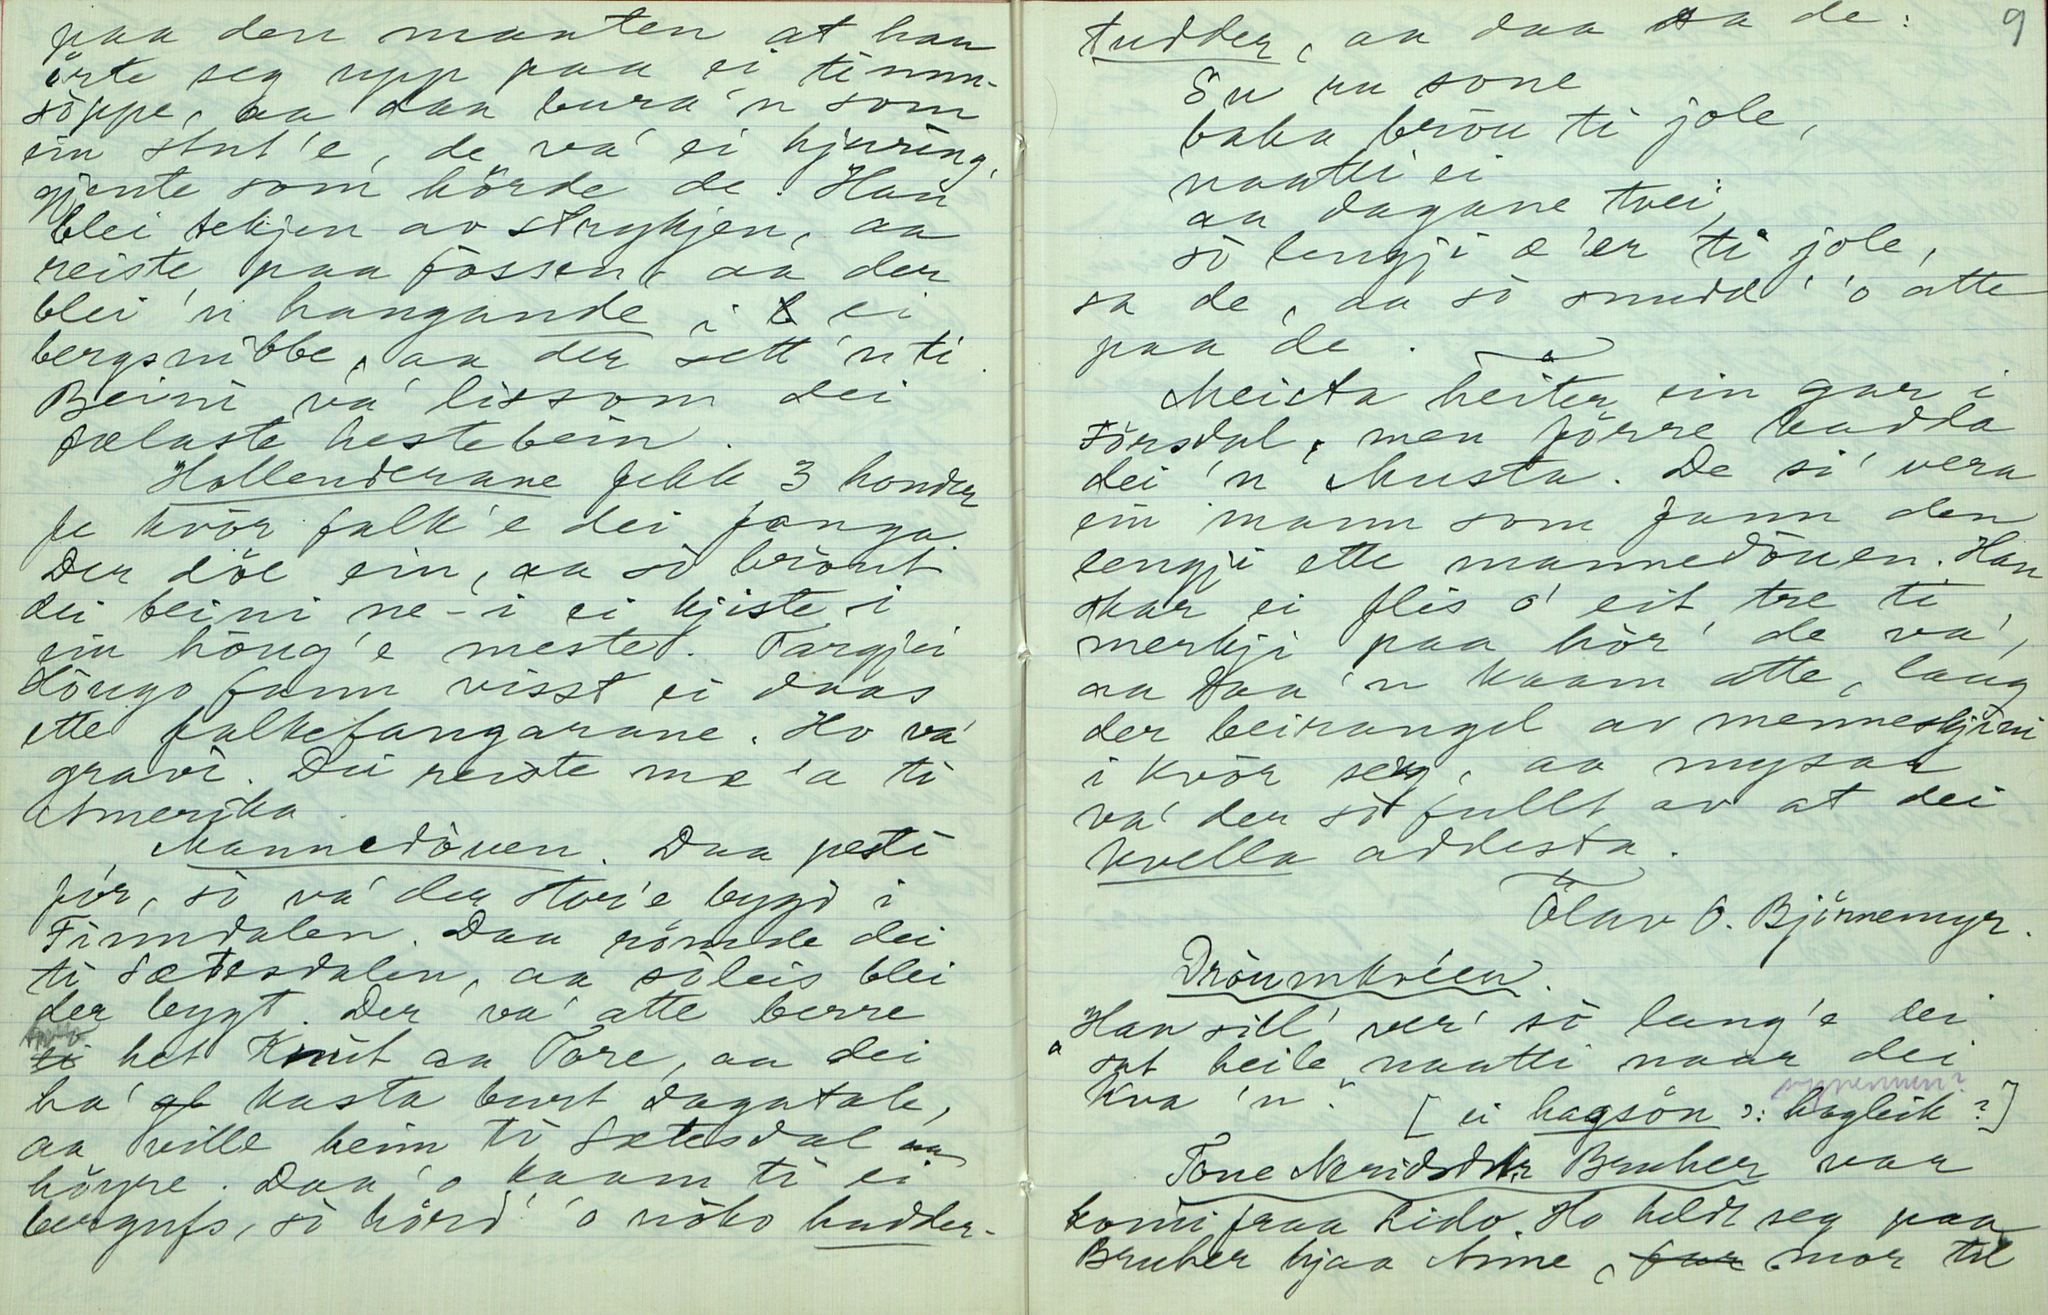 paa den maaten at han
örte seg upp paa ei timm-
söppe, aa daa bura 'n som
ein stut'e, de va' ei hjuring,
gjente som hörde de. Han
blei tekjen av strykjen, aa
reiste paa fossen, aa der
blei 'n hangande i ei
bergsnibbe, aa der sett 'n ti.
Beini va' lissom dei
fælaste hestebein.
Hollenderane fekk 3 honder
fe kvör falk'e dei fanga.
Der döe ein, aa sö bröut
dei beini ne-i ei kjiste i
ein höug'e meste. Targjei
fann visst ei daas
ette falkefangarane. Ho va'
gravi. Dei reiste me 'a ti
Amerika.
Mannedöuen. Daa pesti
för, sö va' der stor'e bygd i
Finndalen. Daa römde dei
ti Sætesdalen, aa söleis blei
der bygt. Der va' atte berre
het Knut aa Tore, aa dei
ha' kasta burt dagatale,
aa ville heim ti Sætesdal aa
höyre. Daa 'o kaam ti ei
bergufs, sö hörd' 'o nöko hudder-
9
tudder, aa daa sa de:
Su ru sone
baka bröu ti jole,
naatti ei
aa dagane tvei,
sö lengji æ 'er ti jole,
sa de, aa sö snudd' 'o atte
paa de.
Meista heiter ein gar i
Försdal, men förre kadda
dei 'n Musta. De si' vera
ein mann som fann den
lengji ette mannedöuen. Han
skar ei flis o' eit tre ti
merkji paa hör' de va',
aa daa 'n kaam atte, laag
der beirangel av menneskjini
i kvör seng, aa mysaa
va' der sö fullt av at dei
kvella addesta.
Olav O. Björnemyr.
Dröumkvéen.
"Han sill' ver' sö lang'e dei
sat heile naatti naar dei
kva 'n".
[ei hagsön ɔ: hagleik?]
Tone Bruher var
komi fraa Lido. Ho heldt seg paa
Bruher hjaa Anne, far mor til